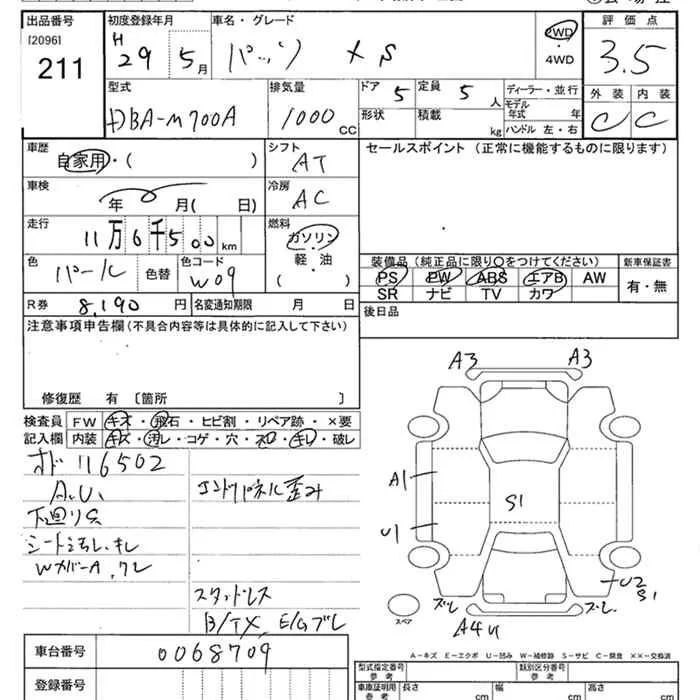 出品番号 初度登録年月 車名・グレード 評価点
[2096] H 29年 5月 パッソ X S 2WD 4WD 3.5
211
型式 排気量 ドア 5 定員 5人 ディーラー・並行 外装 内装
DBA-M700A 1000CC 形状 積載 kg モデル年式 年 C C
ハンドル 左・右
車歴 シフト セールスポイント (正常に機能するものに限ります)
自家用・( ) AT
車検 冷房
年 月( 日) AC
走行 燃料
11万6千500km ガソリン
軽・油
( )
色 パール 色替 色コード W09
装備品 (純正品に限り○をつけてください) 新車保証書
PS PW ABS エアB AW 有・無
SR ナビ TV カワ
R券 8,190円 名変通知期限 月 日
後日品
注意事項申告欄(不具合内容等は具体的に記入して下さい)
修復歴 有 〔箇所 〕
検査員 FW キズ・飛石・ヒビ割・リペア跡・×要
記入欄 内装 キズ・汚レ・コゲ・穴・スレ・キレ・破レ
オド 116502
A.U.
下廻りS
シート汚れ、キレ
WカバーA.ワレ
コンドパネル歪み
スタッドレス
B/TX、E/Gブレ
A3 A3
A1
S1
U1
U2
S1
ズレ ズレ
A4U
スペア
A-キズ E-エクボ U-凹み W-補修跡 S-サビ C-腐食 ××-交換済
車台番号 0068709
登録番号
型式指定番号 参考 類別区分番号 参考
車庫証明用 参考 長さ cm 幅 cm 高さ cm